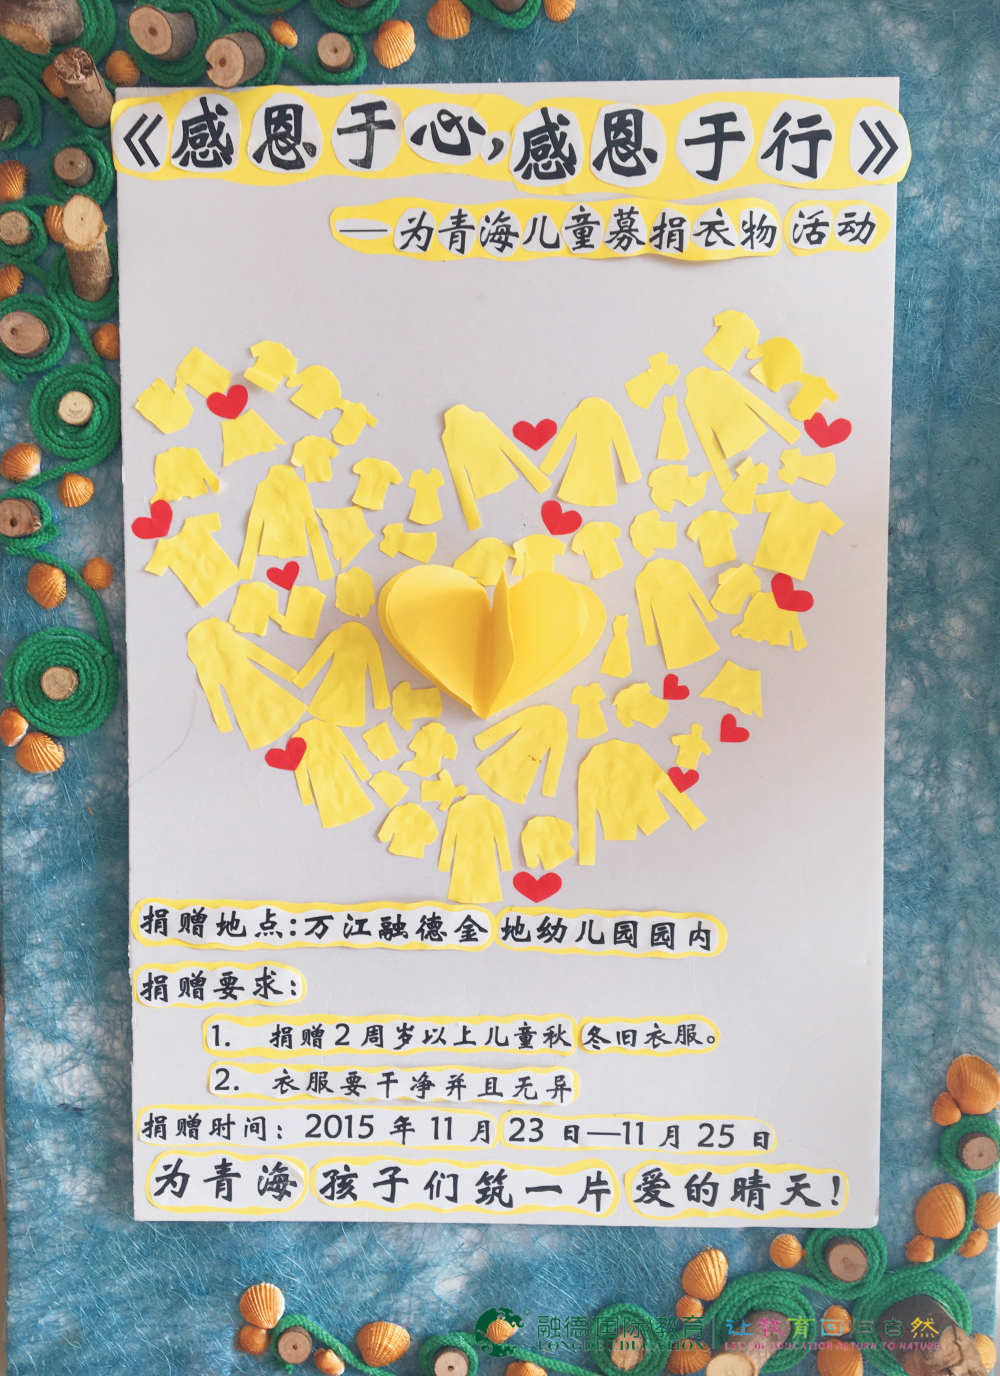 《感恩于心,感恩于行》
—为青海儿童募捐衣物活动
捐赠地点:万江融德金地幼儿园园内
捐赠要求:
1. 捐赠2周岁以上儿童秋冬旧衣服。
2. 衣服要干净并且无异
捐赠时间: 2015年11月23日—11月25日
为青海孩子们筑一片爱的晴天!
融德国际教育
让教育回归自然